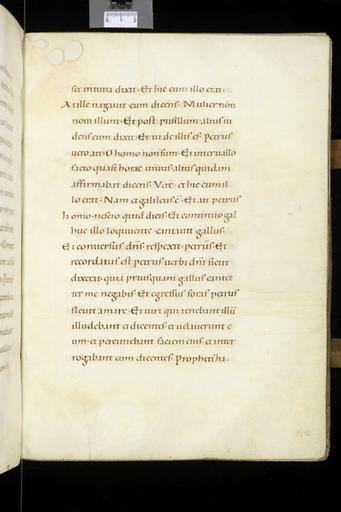 set intuita dixit · Et hic cum illo erat ·
At ille negauit eum dicens · Mulier non
noui illum · Et post pusillum alius ui
dens eum dixit · Et tu de illis es · petrus
uero ait · O homo non sum · Et interuallo
facto quasi horae unius · alius quidam
affirmabat dicens · Vere et hic cum il
lo erat · Nam et galileus ē · Et ait petrus
homo nescio quid dicis · Et continuo ad
huc illo loquente cantauit gallus ·
Et conuersus dn̄s respexit petrum · Et
recordatus est petrus uerbi dn̄i sicut
dixerat · quia priusquam gallus cantet
ter me negabis · Et egressus foras petrus
fleuit amare · Et uiri qui tenebant illū
illudebant ei cedentes et uelauerunt e
um · et percutiebant faciem eius et inter
rogabant eum dicentes · Prophetiza ·